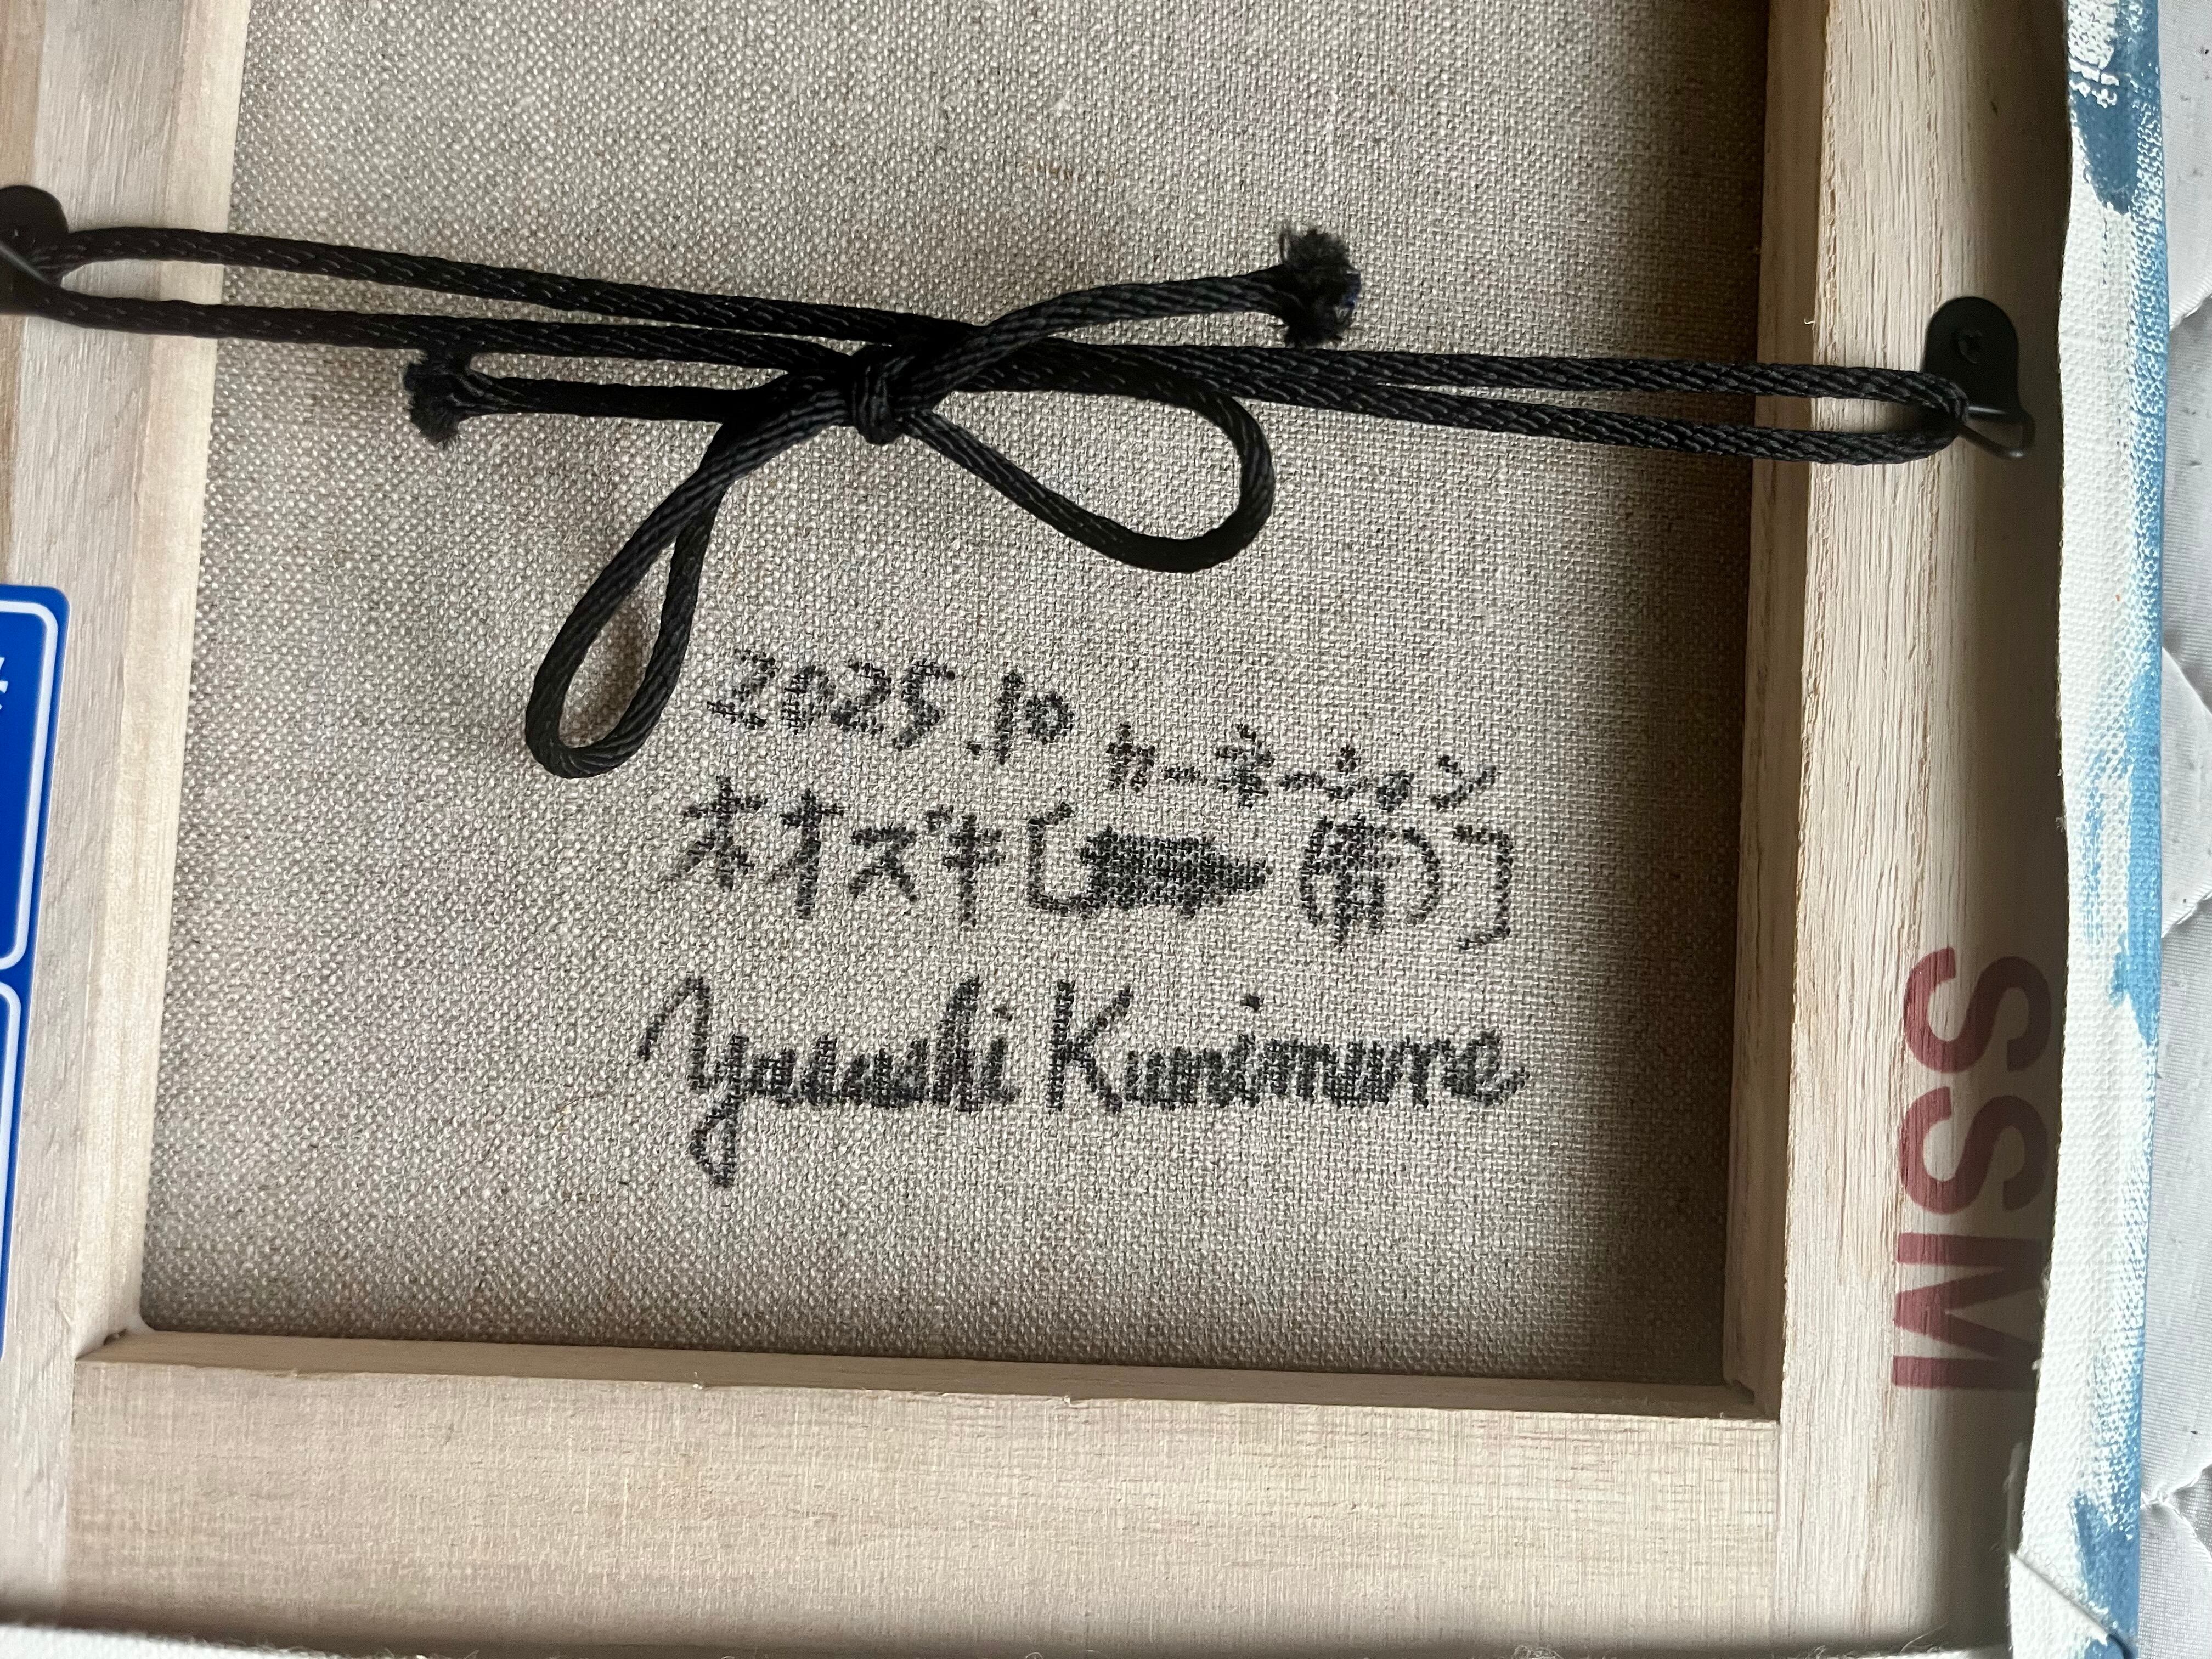 2025.10
カーネーション
オオスズキ[ (雨)]
Yasushi Kunimune
SSM